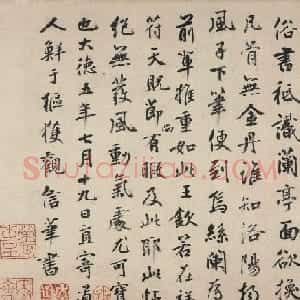 俗書祇識蘭亭面欲換
凡骨無金丹誰知洛陽楊
風子下筆便到烏絲闌
前輩推重如此王欽若在祥
符天貺節有跋及此耶此
絕無風動氣處尤可寶
也大德五年七月十九日直寄道
人鮮于樞獲觀信筆書